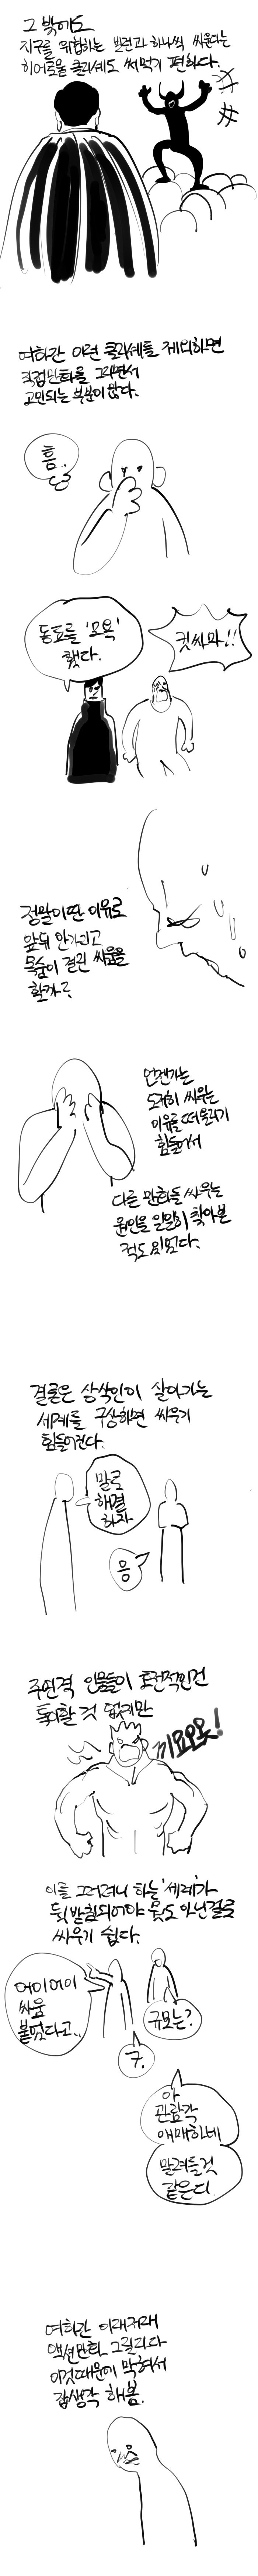 그 밖에도
지구를 위협하는 빌런과 하나씩 싸운다는
히어로물 클리셰도 써먹기 편하다.
여하간 이런 클리셰를 제외하면
직접 만화를 그리면서
고민되는 부분이 많다.
흠..
동료를 '모욕'
했다.
킷싸마!!
정말 이딴 이유로
앞뒤 안가리고
목숨이 걸린 싸움을
할까?
언젠가는
도저히 싸우는
이유를 떠올리기
힘들어서
다른 만화들 싸우는
원인을 일일히 찾아본
적도 있었다.
결론은 상식인이 살아가는
세계를 구상하면 싸우기
힘들어진다.
말로
해결
하자
응
주연격 인물들이 호전적인건
특이할 것 없지만
끼요오옷!
이를 그러려니 하는 '세계'가
뒷받침되어야 뭣도 아닌걸로
싸우기 쉽다.
어이어이
싸움
붙었다고..
규모는?
구.
아
관람각
애매하네
말려들것
같은디.
여하간 이래저래
액션만화 그릴라다
이것때문에 막혀서
잡생각 해봄.